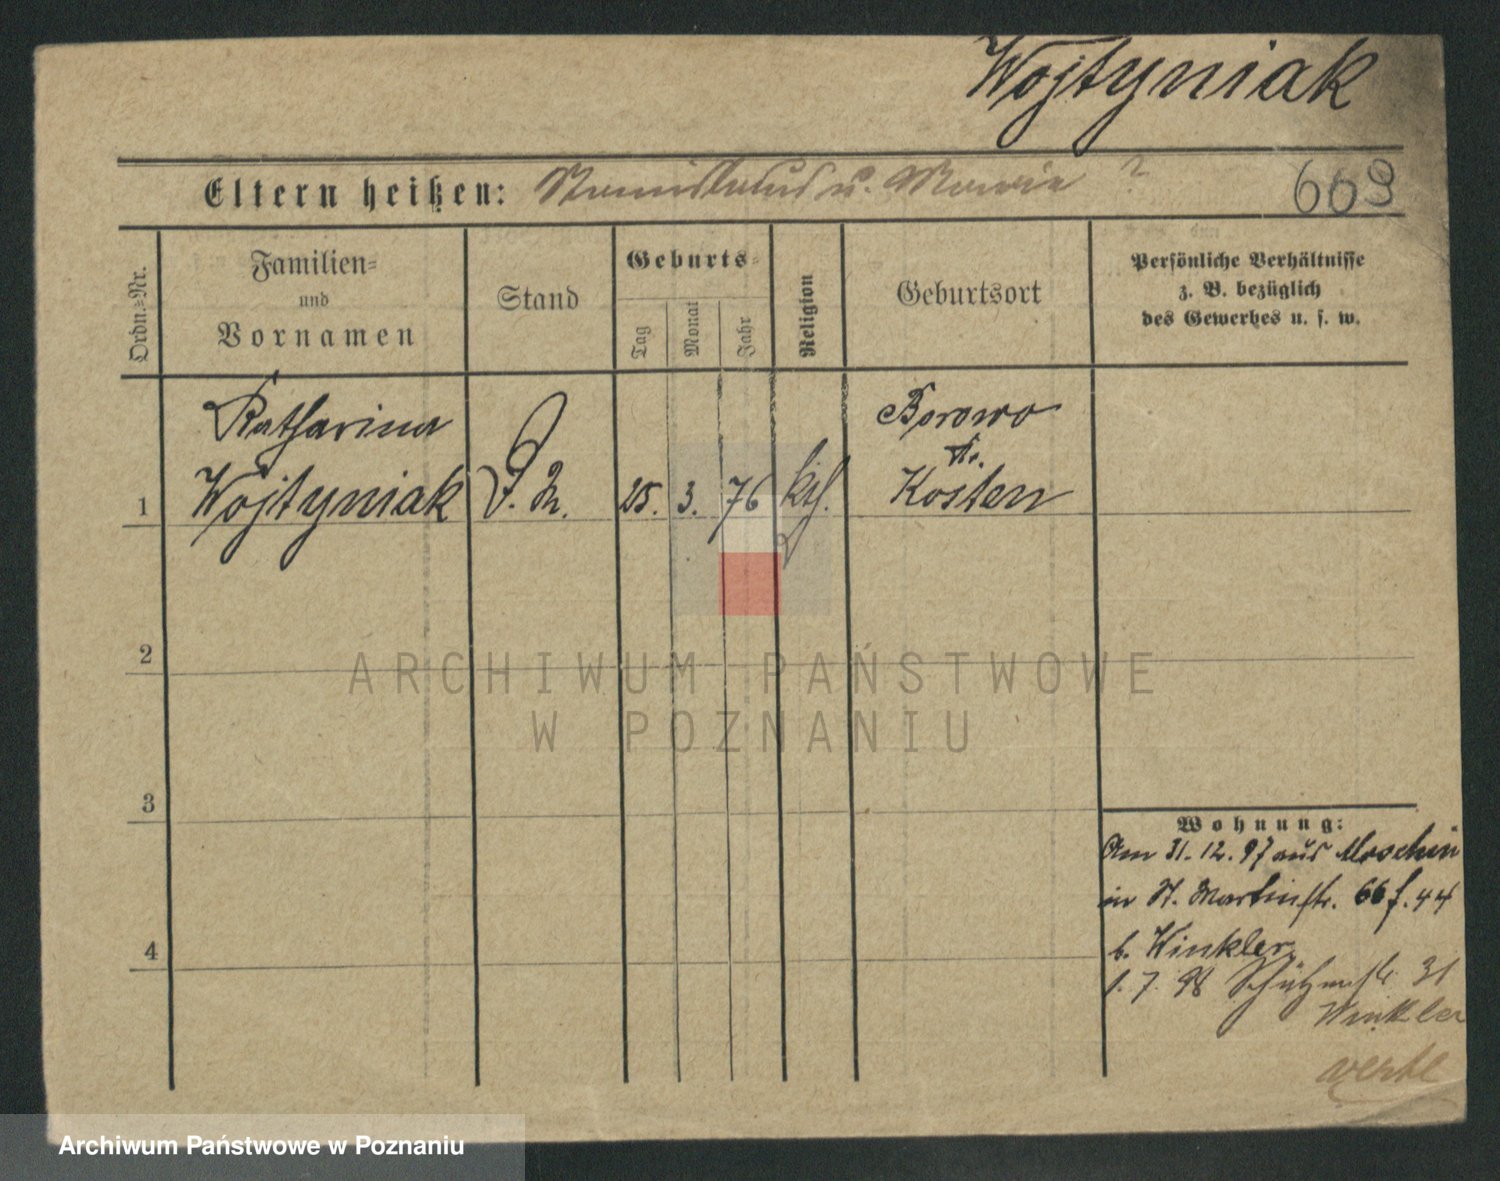 Wojtyniak
Eltern heißen: Stanislaus u. Marie ?
609
Ordn.=Nr.
Familien=
und
Vornamen
Stand
Geburts=
Tag
Monat
Jahr
Religion
Geburtsort
Persönliche Verhältnisse
z. B. bezüglich
des Gewerbes u. s. w.
Katharina
Wojtyniak
D. M.
25. 3. 76
kth.
Borowo
Kr.
Kosten
1
2
3
4
ARCHIWUM PAŃSTWOWE
W POZNANIU
Wohnung:
Am 31. 12. 97 aus Moschin
in St. Martinstr. 66 f. 44
b. Winkler
1. 7. 98 Schützenstr. 31
Winkler
verte
Archiwum Państwowe w Poznaniu